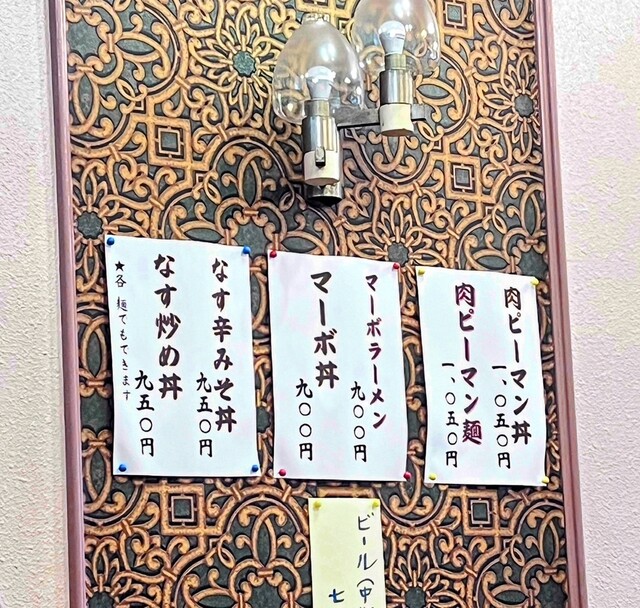 肉ピーマン丼
一、〇五〇円
肉ピーマン麺
一、〇五〇円
マーボラーメン
九〇〇円
マーボ丼
九〇〇円
なす辛みそ丼
九五〇円
なす炒め丼
九五〇円
★各麺でもできます
ビール(中
七